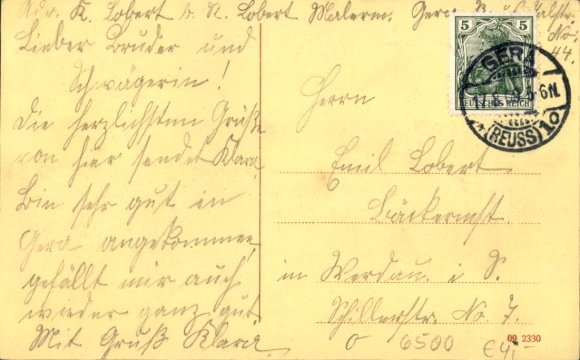 Adr. K. Lobert b. R. Lobert Malerm. Gera
No:
44.
Lieber Bruder und
Schwägerin!
Die herzlichsten Grüße
von hier sendet Klara.
Bin sehr gut in
Gera angekommen,
gefällt mir auch
wieder ganz gut
Mit Gruß Klara.
5 5
DEUTSCHES REICH
GERA
(REUSS) 10
Herrn
Emil Lobert
Bäckermst.
in Werdau i. S.
Schillerstr. No. 7.
6500
09 2330